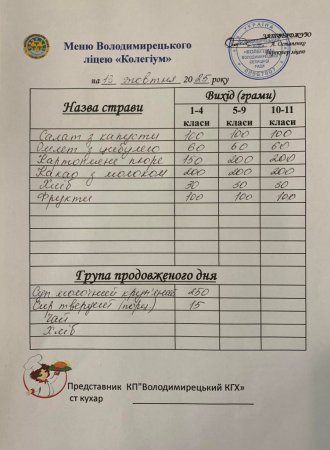 ЗАТВЕРДЖУЮ
Л. Остапенко
Директор ліцею
УКРАЇНА
«КОЛЕГІУМ»
ВОЛОДИМИРЕЦЬКОЇ
СЕЛИЩНОЇ
РАДИ
Меню Володимирецького
ліцею «Колегіум»
на 13 жовтня 2025 року
Назва страви Вихід (грами)
1-4 класи 5-9 класи 10-11 класи
Салат з капусти 100 100 100
Омлет з цибулею 60 60 60
Картопляне пюре 150 200 200
Какао з молоком 200 200 200
Хліб 30 50 50
Фрукти 100 100 100
Група продовженого дня
Суп молочний круп'яний 250
Сир твердий (порц.) 15
Чай
Хліб
Представник КП"Володимирецький КГХ»
ст кухар